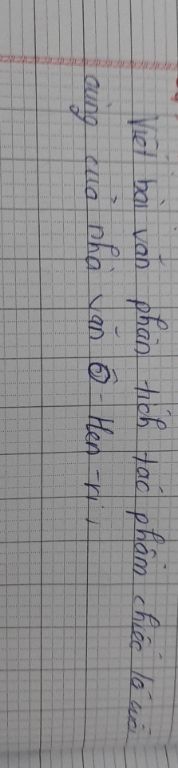 Viết bài văn phân tích tác phẩm chiếc lá cuối
cùng của nhà văn Ô-Hen-ri,